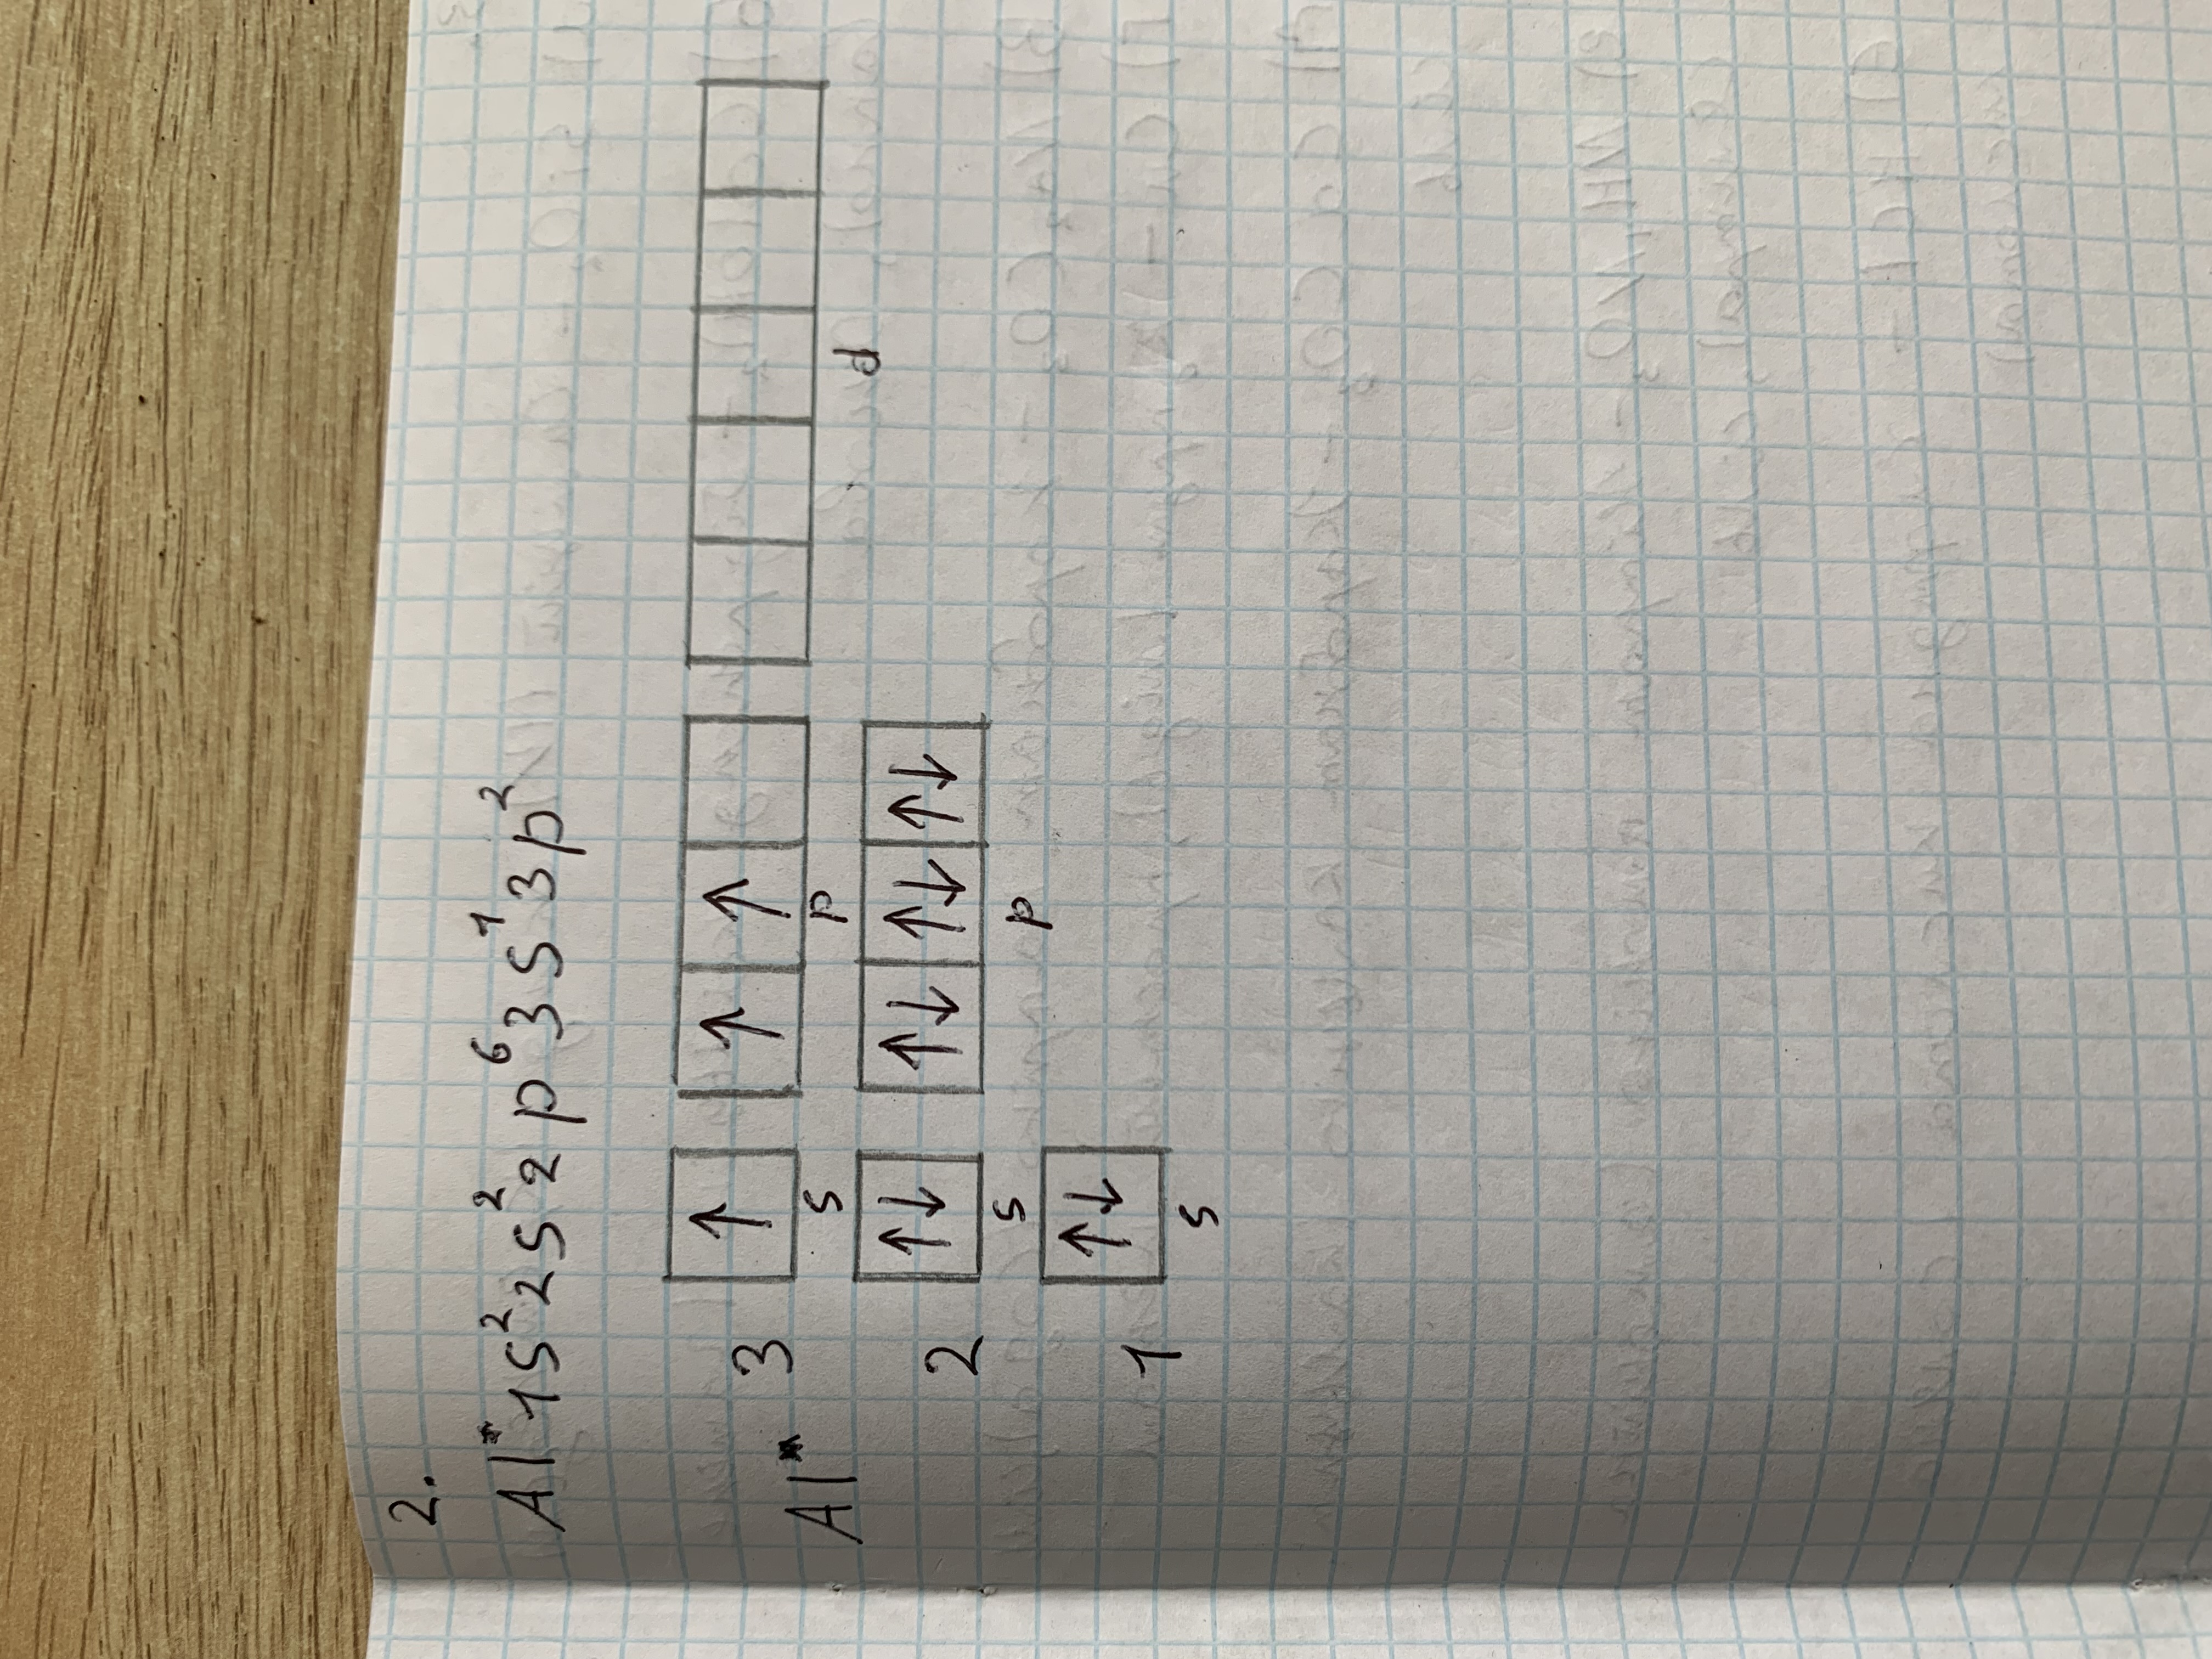 2.
Al* 1s² 2s² 2p⁶ 3s¹ 3p²
Al* 3 ↑ ↑ ↑
s p d
2 ↑↓ ↑↓ ↑↓ ↑↓
s p
1 ↑↓
s